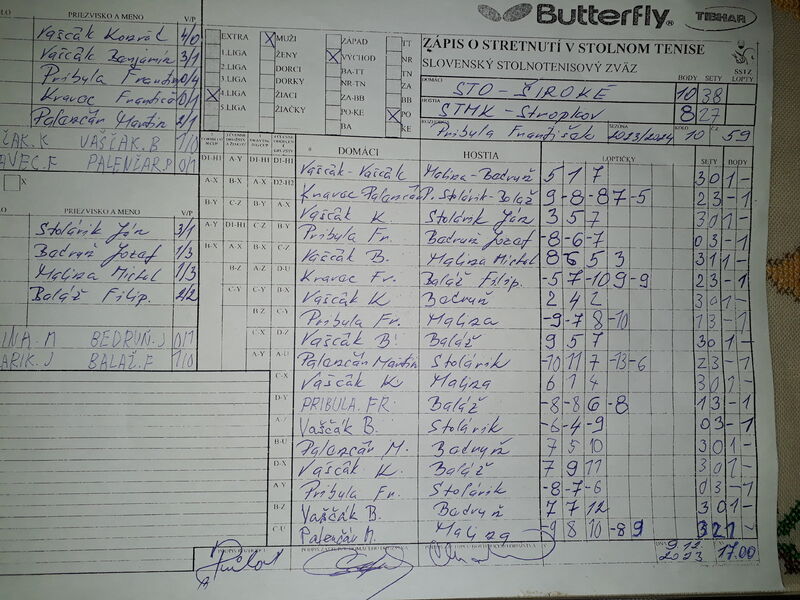 Butterfly TIBHAR
ZÁPIS O STRETNUTÍ V STOLNOM TENISE
SLOVENSKÝ STOLNOTENISOVÝ ZVÄZ
PRIEZVISKO A MENO V/P
Vaščák Konrád 4/0
Vaščák Benjamín 3/1
Pribula František 0/4
Kravec František 0/1
Palenčár Martin 2/1
VAŠČÁK.B 1/0
PALENČÁR.P 0/1
EXTRA X MUŽI ZÁPAD TT
1.LIGA ŽENY X VÝCHOD NR
2.LIGA DORCI BA-TT TN
3.LIGA DORKY NR-TN ZA
X 4.LIGA ŽIACI ZA-BB BB
5.LIGA ŽIAČKY PO-KE X PO
BA KE
DOMÁCI STO - ŠIROKÉ BODY 10 SETY 38
HOSTIA STMK - Stropkov 8 27
Pribula František SEZÓNA 2023/2024 KOLO 10 59
PRIEZVISKO A MENO V/P
Stolárik Ján 3/1
Bedruň Jozef 1/3
Maliza Michal 1/3
Baláž Filip. 2/2
BEDRUŇ.J 0/1
BALÁŽ.F 1/0
DOMÁCI HOSTIA LOPTIČKY SETY BODY
Vaščák - Vaščák Maliza - Bedruň 5 1 7 3 0 1 -
Kravec Palenčár P. Stolárik - Baláž 9 -8 -8 7 -5 2 3 - 1
Vaščák K Stolárik Ján 3 5 7 3 0 1 -
Pribula Fr. Bedruň Jozef -8 -6 -7 0 3 - 1
Vaščák B. Maliza Michal 8 6 5 3 3 1 1 -
Kravec Fr. Baláž Filip. -5 7 -10 9 -9 2 3 - 1
Vaščák K Bedruň 2 4 2 3 0 1 -
Pribula Fr. Maliza -9 -7 8 -10 1 3 - 1
Vaščák B. Baláž 9 5 7 3 0 1 -
Palenčár Martin Stolárik -10 11 7 -13 -6 2 3 - 1
Vaščák K. Maliza 6 1 4 3 0 1 -
PRIBULA. FR. Baláž -8 -8 6 -8 1 3 - 1
Vaščák B. Stolárik -6 -4 -9 0 3 - 1
Palenčár M. Bedruň 7 5 10 3 0 1 -
Vaščák K. Baláž 7 9 11 3 0 1 -
Pribula Fr. Stolárik -8 -7 -6 0 3 - 1
Vaščák B. Bedruň 7 7 12 3 0 1 -
Palenčár M. Maliza -9 8 10 -8 9 3 2 1 -
9.12. 2023 17.00